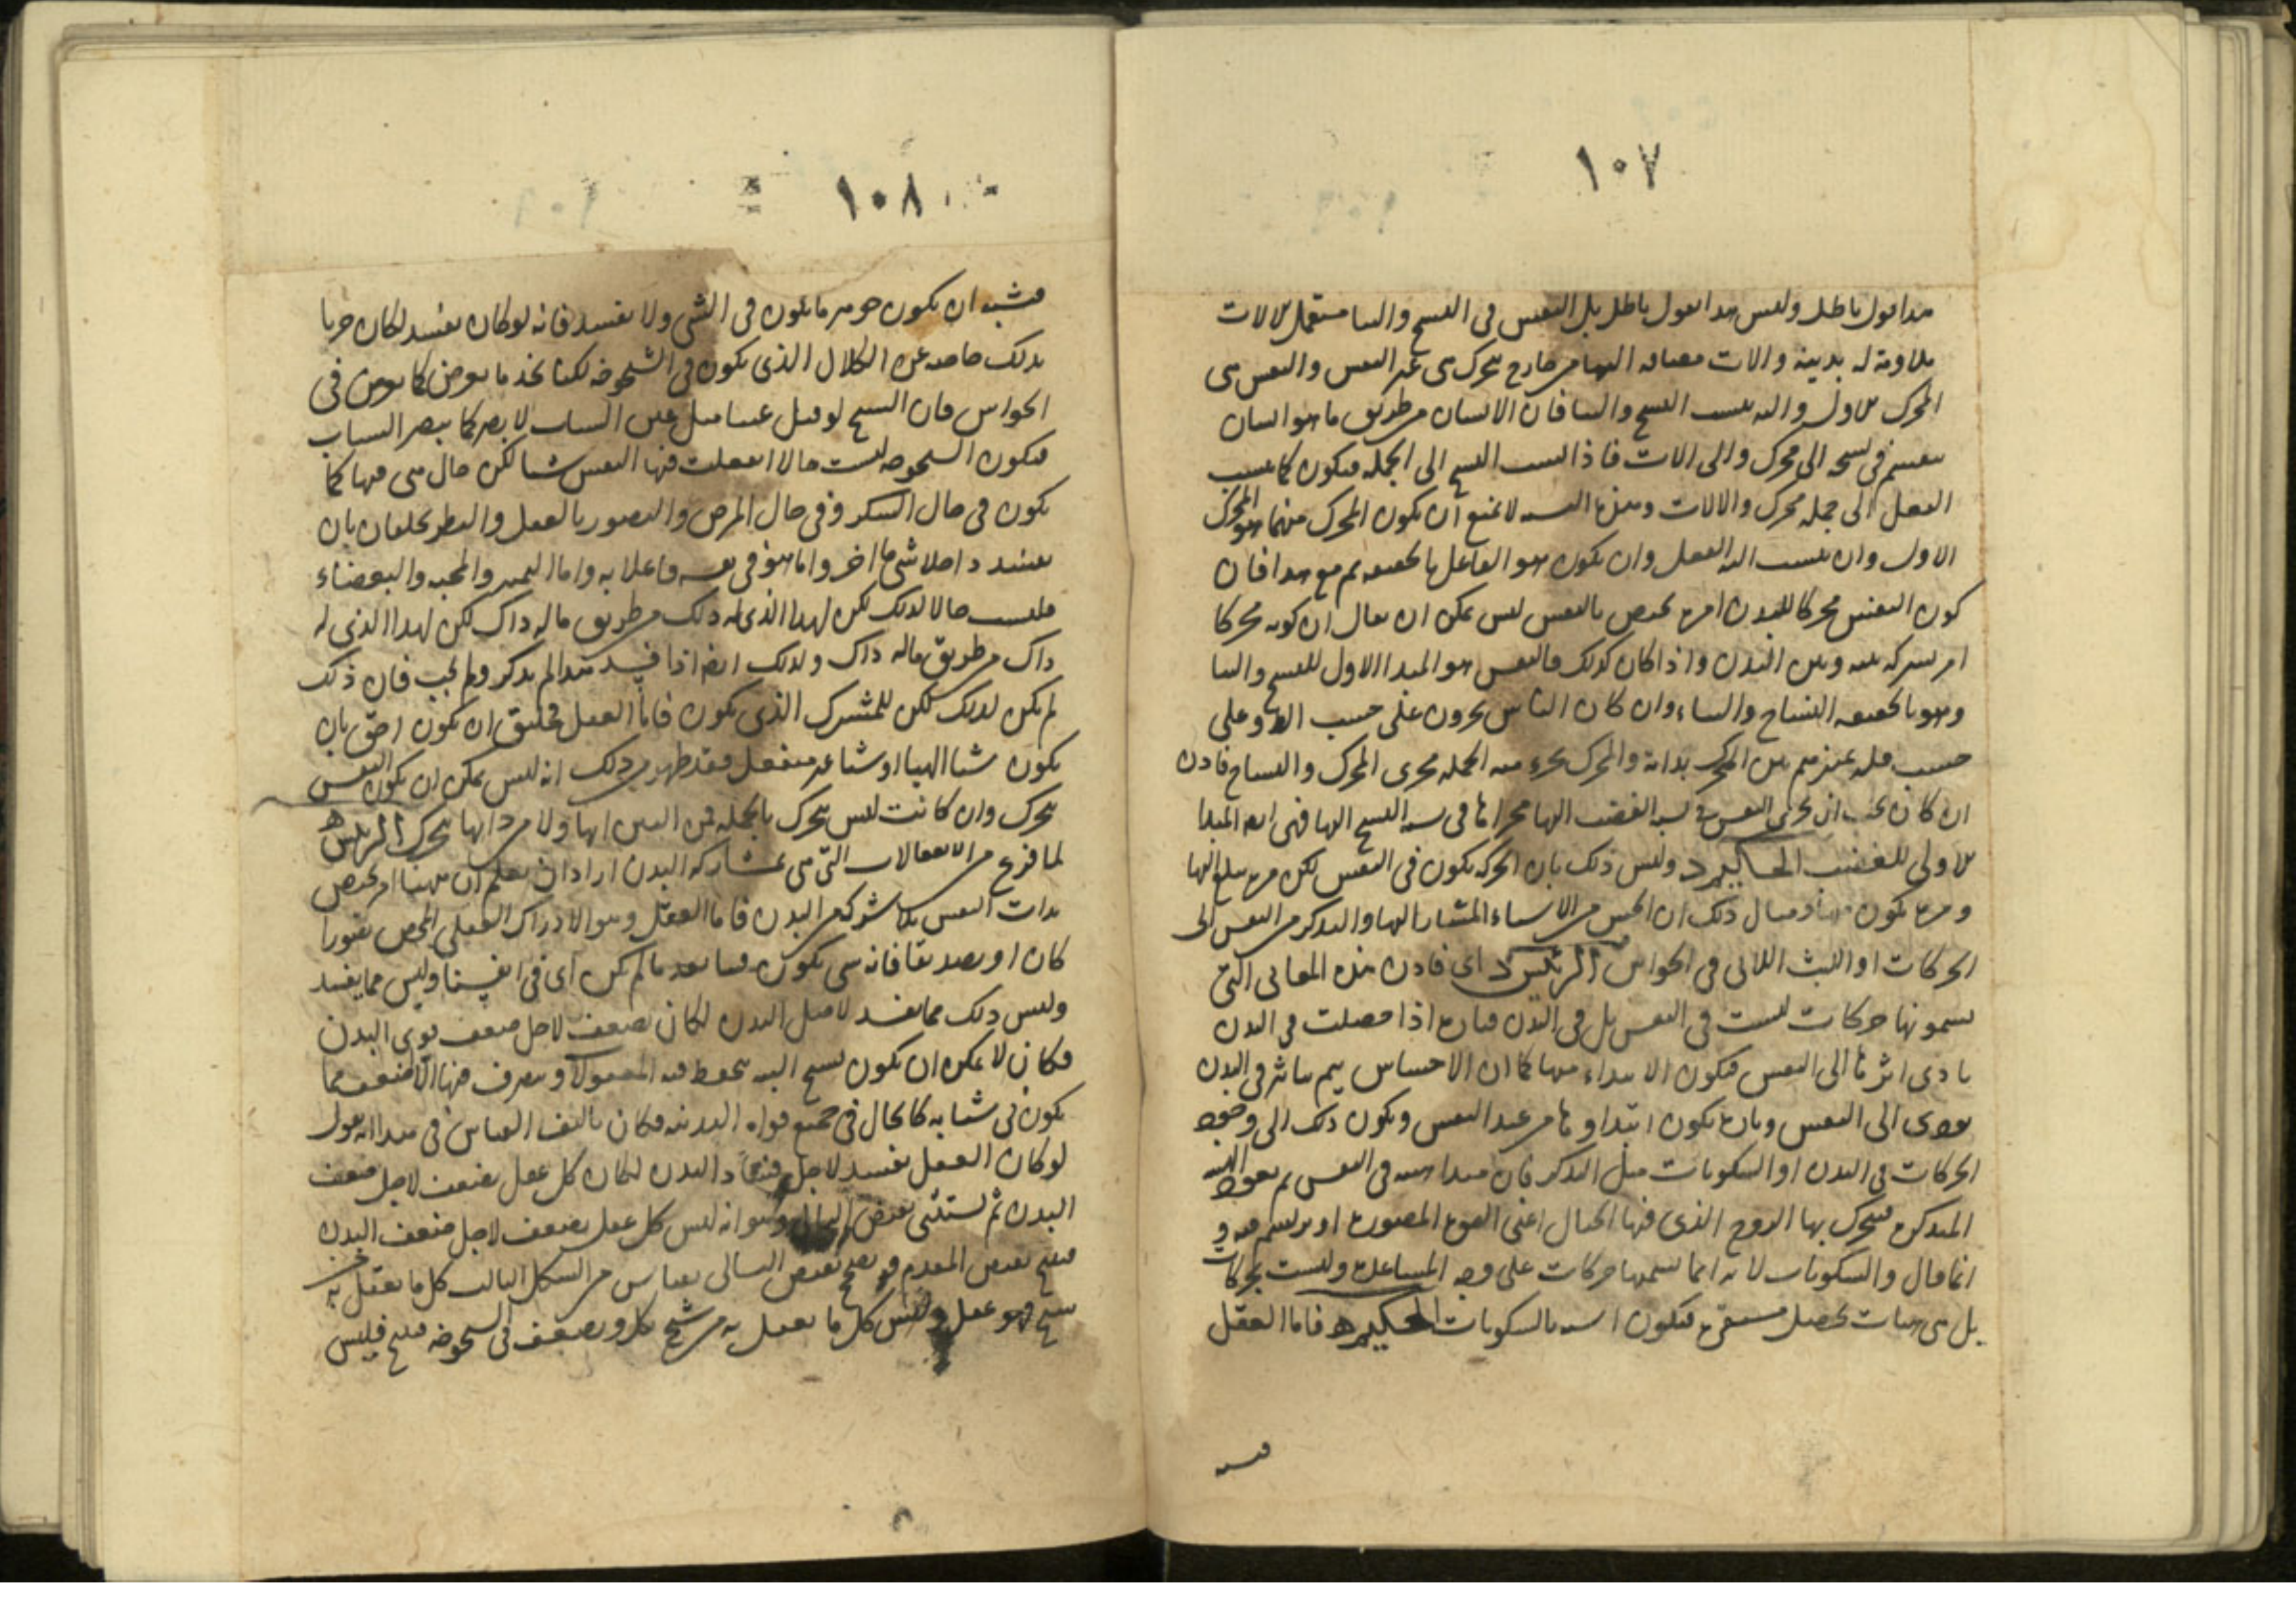 ١٠٧
هذا القول باطل وليس هذا القول باطل بل النفس في النسج والبنا مستعمل للالات
ملاومة له بدنية والات مضافه اليها من خارج تتحرك هي غير النفس والنفس هي
المحرك الاول واليه ينسب النسج والبنا فان الانسان من طريق ما هو انسان
ينقسم في نسجه الى محرك والى الات فاذا نسب النسج الى الجمله فيكون كما ينسب
الفعل الى جمله محرك والالات وهذه النسبه لا تمنع ان يكون المحرك منهما هو المحرك
الاول وان ينسب اليه الفعل وان يكون هو الفاعل بالحقيقه ثم مع هذا فان
كون النفس محركا للبدن امر يختص بالنفس ليس يمكن ان يقال ان كونه محركا
امر مشركه بينه وبين البدن واذا كان كذلك فالنفس هو المبدا الاول للنسج والبنا
وهو بالحقيقه النساج والبناء وان كان الناس يجرون على حسب الظ وعلى
حسب قله تمييزهم بين المحرك بذاته والمحرك بجزء منه الجمله مجرى المحرك والنساج فاذن
ان كان يجب ان يجرى النفس في نسبه الغضب اليها مجراها في نسبه النسج اليها فهى ايضا المبدا
الاولى للغضب الحكيم د وليس ذلك بان الحركه تكون في النفس لكن مره يبلغ اليها
ومره تكون منها ومثال ذلك ان الحس من الاشياء المشار اليها والتذكر من النفس الى
الحركات او اللبث اللاتى في الحواس الرئيس د اى فاذن هذه المعانى التى
يسمونها حركات ليست في النفس بل في البدن فتاره اذا حصلت في البدن
يادى اثرها الى النفس فيكون الابتداء منها كما ان الاحساس يتم بتاثر في البدن
يودى الى النفس وتاره تكون ابتداوها من عند النفس ويكون ذلك الى وجود
الحركات في البدن او السكونات مثل التذكر فان مبدا هيئه في النفس ثم يعود الهيئه
المتذكره فيتحرك بها الروح الذى فيها الخيال اعنى القوه المصوره او يرتسم فيه و
انما قال والسكونات لانه انما سميها حركات على وجه المساعله وليست بحركات
بل هى هيئات تحصل مستقره فتكون اشبه بالسكونات الحكيم ه فاما العقل
فيشبه
١٠٨
فيشبه ان يكون جوهر ما يكون في الشى ولا يفسد فانه لو كان يفسد لكان حريا
بذلك خاصه عن الكلال الذى يكون في الشيخوخه لكنا نجد ما يعرض كما يعرض في
الحواس فان الشيخ لو قبل عينا مثل عين الشاب لابصر كما يبصر الشاب
فيكون الشيخوخه ليست حالا انفعلت فيها النفس شيا لكن حال هى فيها كما
يكون في حال السكر وفي حال المرض والتصور بالعقل والنظر يختلفان بان
يفسد داخلا شى ما اخر واما هو في نفسه فاعلا به واما التمييز والمحبه والبغضاء
فليست حالا لذلك لكن لهذا الذى له ذلك من طريق ماله ذاك لكن لهذا الذى له
ذاك من طريق ماله ذاك ولذلك ايضا اذا فسد هذا لم يذكر ولم يحب فان ذلك
لم يكن لذلك لكن للمشترك الذى يكون فاما العقل فخليق ان يكون احق بان
يكون شيا الهيا او شيا غير منفعل فقد ظهر من ذلك انه ليس يمكن ان يكون النفس
تتحرك وان كانت ليس تتحرك بالجمله فمن البين انها ولا من ذاتها تتحرك الرئيس ه
لما فرغ من الانفعالات التى هى بمشاركه البدن اراد ان يعلم ان ههنا امر يختص
بذات النفس بلا شركه من البدن فاما العقل وهو الادراك العقلى المحض تصورا
كان او تصديقا فانه شى يكون فينا بعد ما لم يكن اى في انفسنا وليس مما يفسد
وليس ذلك مما يفسد لا مثل البدن لكان يضعف لاجل ضعف قوى البدن
فكان لا يمكن ان يكون شيخ البته يحفظ فيه المعقولات ويتصرف فيها الا اضعف مما
يكون في شبابه كالحال في جميع قواه البدنيه وكان تاليف القياس في هذا انه يقول
لو كان العقل يفسد لاجل فساد البدن لكان كل عقل يضعف لاجل ضعف
البدن ثم يستثنى نقيض التالى وهو انه ليس كل عقل يضعف لاجل ضعف البدن
فينتج نقيض المقدم ويصح نقيض التالى بقياس من الشكل الثالث كل ما يعقل به
شيخ فهو عقل وليس كل ما يعقل به من شيخ يكل ويضعف في الشيخوخه فينتج فليس